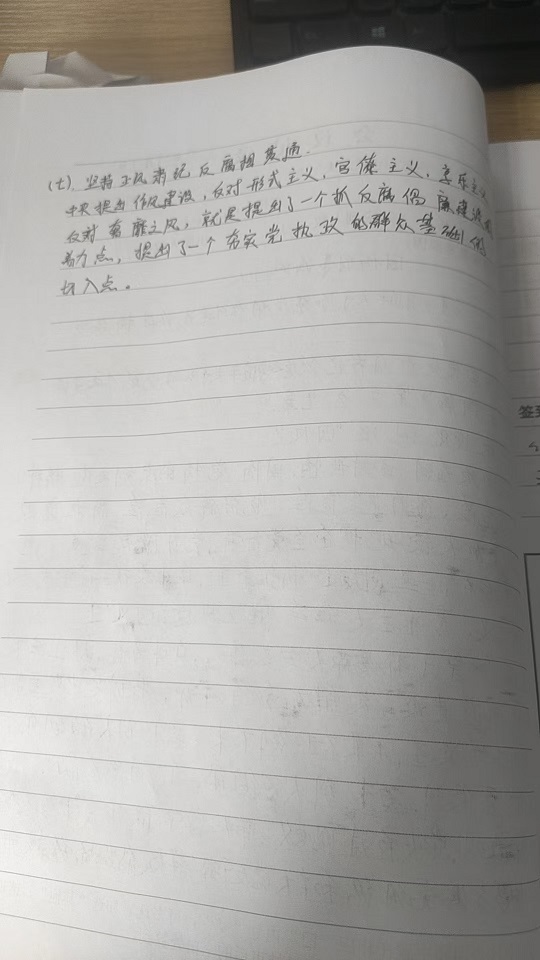 (七) 坚持正风肃纪反腐相贯通.
中央提出作风建设,反对形式主义,官僚主义,享乐主义
反对奢靡之风,就是提出了一个抓反腐倡廉建设的
着力点,提出了一个夯实党执政的群众基础的
切入点。
签到